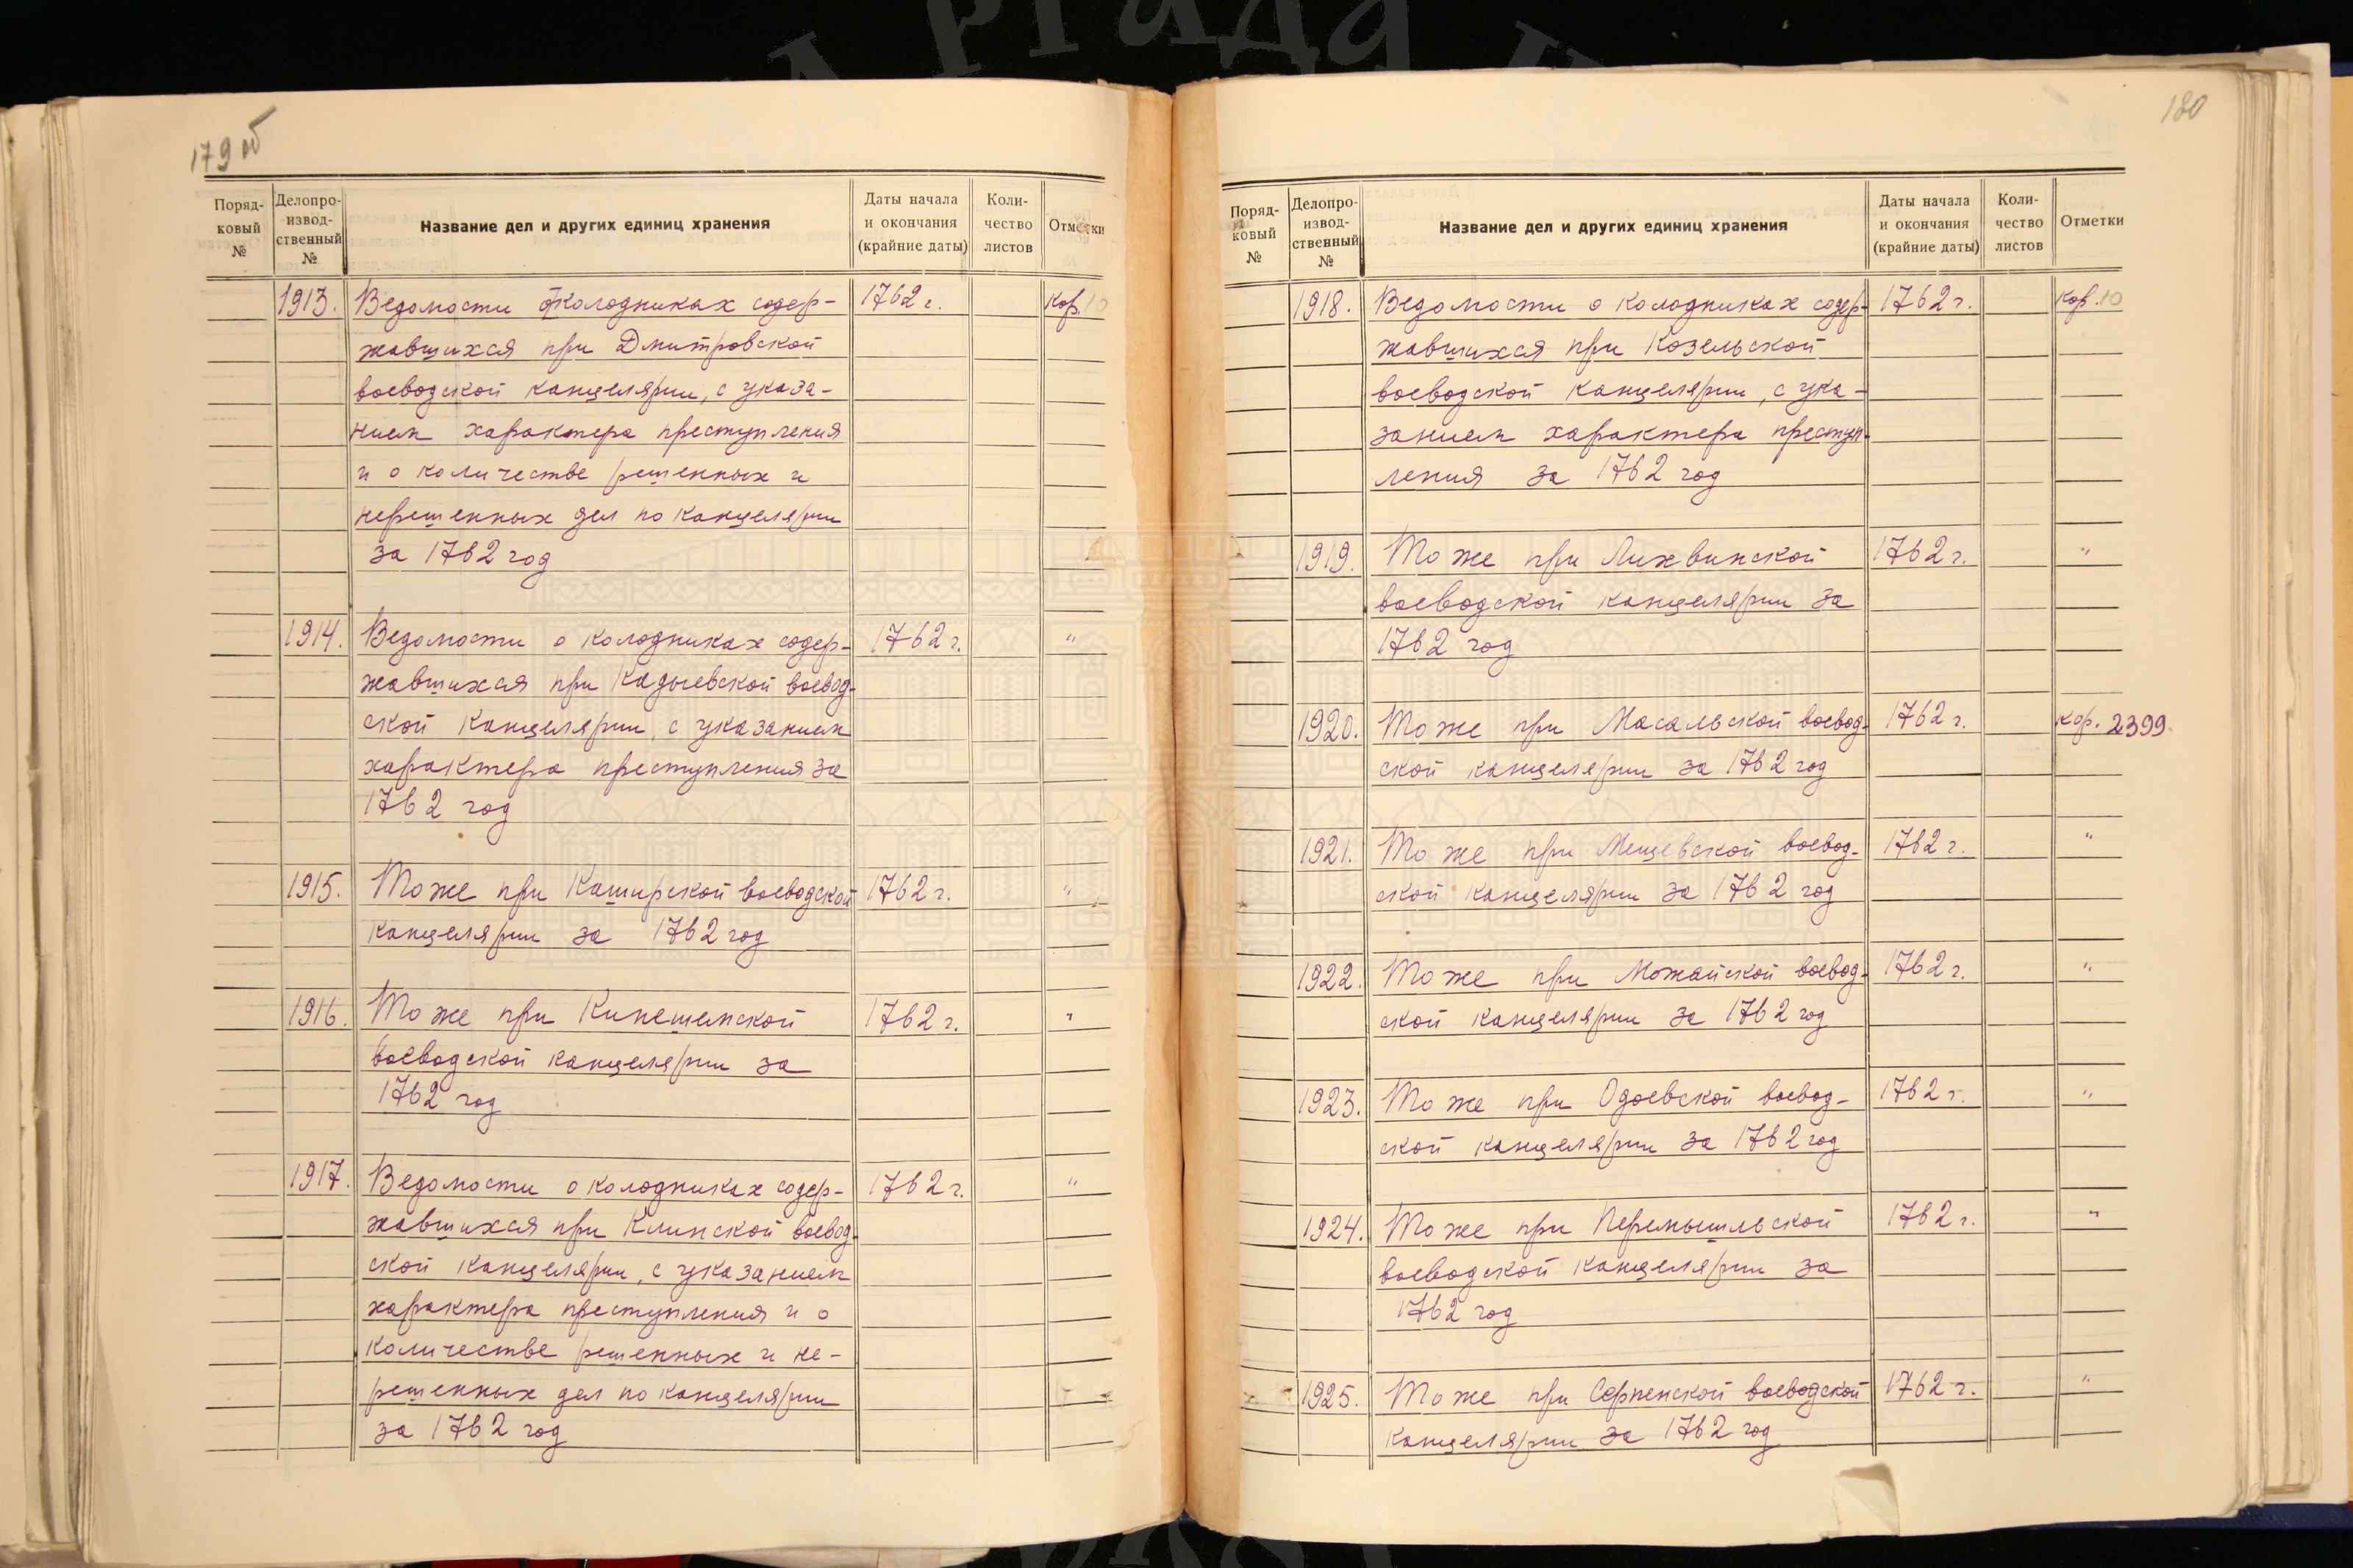 179 об
Поряд-
ковый
№
Делопро-
извод-
ственный
№
Название дел и других единиц хранения
Даты начала
и окончания
(крайние даты)
Коли-
чество
листов
Отметки
1913. Ведомости о колодниках содер- 1762 г. Кор. 10
жавшихся при Дмитровской
воеводской канцелярии, с указа-
нием характера преступления
и о количестве решенных и
нерешенных дел по канцелярии
за 1762 год
1914. Ведомости о колодниках содер- 1762 г. "
жавшихся при Кадыевской воевод-
ской канцелярии, с указанием
характера преступления за
1762 год
1915. То же при Каширской воеводской 1762 г. "
канцелярии за 1762 год
1916. То же при Кинешемской 1762 г. "
воеводской канцелярии за
1762 год
1917. Ведомости о колодниках содер- 1762 г. "
жавшихся при Клинской воевод-
ской канцелярии, с указанием
характера преступления и о
количестве решенных и не-
решенных дел по канцелярии
за 1762 год
180
Поряд-
ковый
№
Делопро-
извод-
ственный
№
Название дел и других единиц хранения
Даты начала
и окончания
(крайние даты)
Коли-
чество
листов
Отметки
1918. Ведомости о колодниках содер- 1762 г. Кор. 10
жавшихся при Козельской
воеводской канцелярии, с ука-
занием характера преступ-
ления за 1762 год
1919. То же при Лихвинской 1762 г. "
воеводской канцелярии за
1762 год
1920. То же при Масальской воевод- 1762 г. Кор. 2399
ской канцелярии за 1762 год
1921. То же при Мещевской воевод- 1762 г. "
ской канцелярии за 1762 год
1922. То же при Можайской воевод- 1762 г. "
ской канцелярии за 1762 год
1923. То же при Одоевской воевод- 1762 г. "
ской канцелярии за 1762 год
1924. То же при Перемышльской 1762 г. "
воеводской канцелярии за
1762 год
1925. То же при Серпенской воеводской 1762 г. "
канцелярии за 1762 год